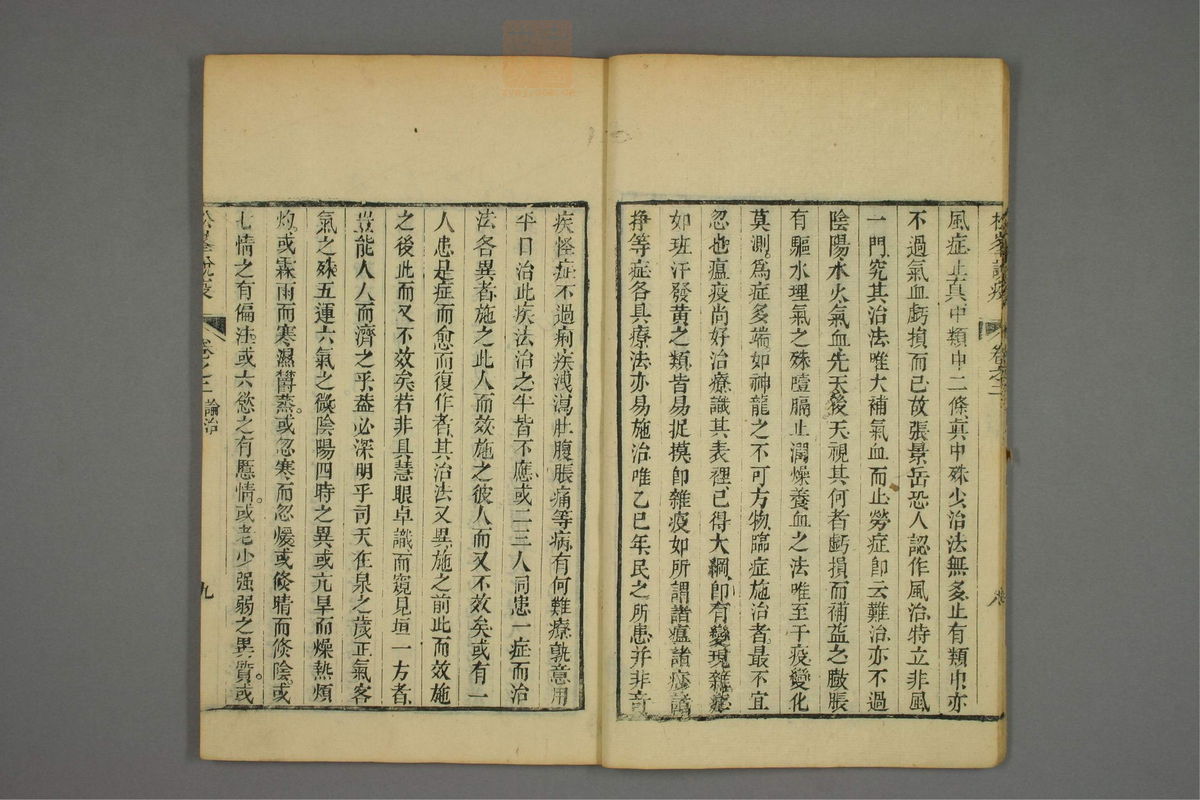 風症止真中類中二條真中殊少治法無多止有類中亦
不過氣血虧損而已故張景岳恐人認作風治特立非風
一門究其治法唯大補氣血而止勞症卽云難治亦不過
陰陽水火氣血先天後天視其何者虧損而補益之臌脹
有驅水理氣之殊噎膈止潤燥養血之法唯至于疫變化
莫測爲症多端如神龍之不可方物臨症施治者最不宜
忽也瘟疫尚好治療識其表裡已得大綱卽有變現雜症
如斑汗發黃之類皆易捉摸卽雜疫如所謂諸瘟諸痧諸
挣等症各具療法亦易施治唯乙巳年民之所患并非奇
疾怪症不過痢疾洩瀉肚腹脹痛等病有何難療孰意用
平日治此疾法治之半皆不應或二三人同患一症而治
法各異者施之此人而效施之彼人而又不效矣或有一
人患是症而愈而復作者其治法又異施之前此而效施
之後此而又不效矣若非具慧眼卓識而窺見垣一方者
豈能人人而濟之乎葢必深明乎司天在泉之歲正氣客
氣之殊五運六氣之微陰陽四時之異或亢旱而燥熱煩
灼或霖雨而寒濕欝蒸或忽寒而忽煖或倏晴而倏陰或
七情之有偏法或六慾之有慝情或老少强弱之異質或
松峯說疫 卷之二 論治 九